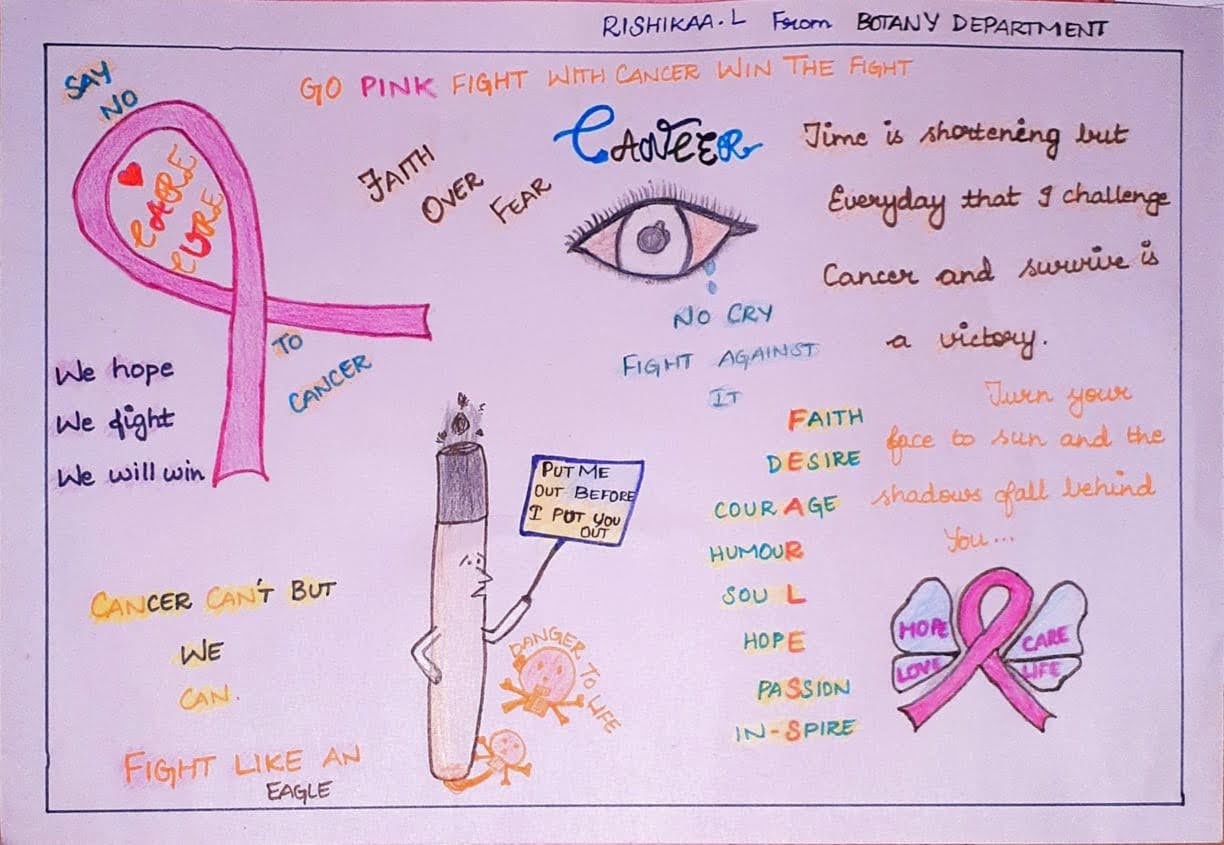 RISHIKAA.L From BOTANY DEPARTMENT
GO PINK FIGHT WITH CANCER WIN THE FIGHT
SAY
NO
TO
CANCER
CARE
CURE
We hope
We fight
We will win
FAITH
OVER
FEAR
CANCER
NO CRY
FIGHT AGAINST
IT
Time is shortening but
Everyday that I challenge
Cancer and survive is
a victory.
Turn your
face to sun and the
shadows fall behind
You...
FAITH
DESIRE
COURAGE
HUMOUR
SOUL
HOPE
PASSION
IN-SPIRE
PUT ME
OUT BEFORE
I PUT YOU
OUT
DANGER TO LIFE
CANCER CAN'T BUT
WE
CAN.
FIGHT LIKE AN
EAGLE
HOPE
CARE
LOVE
LIFE